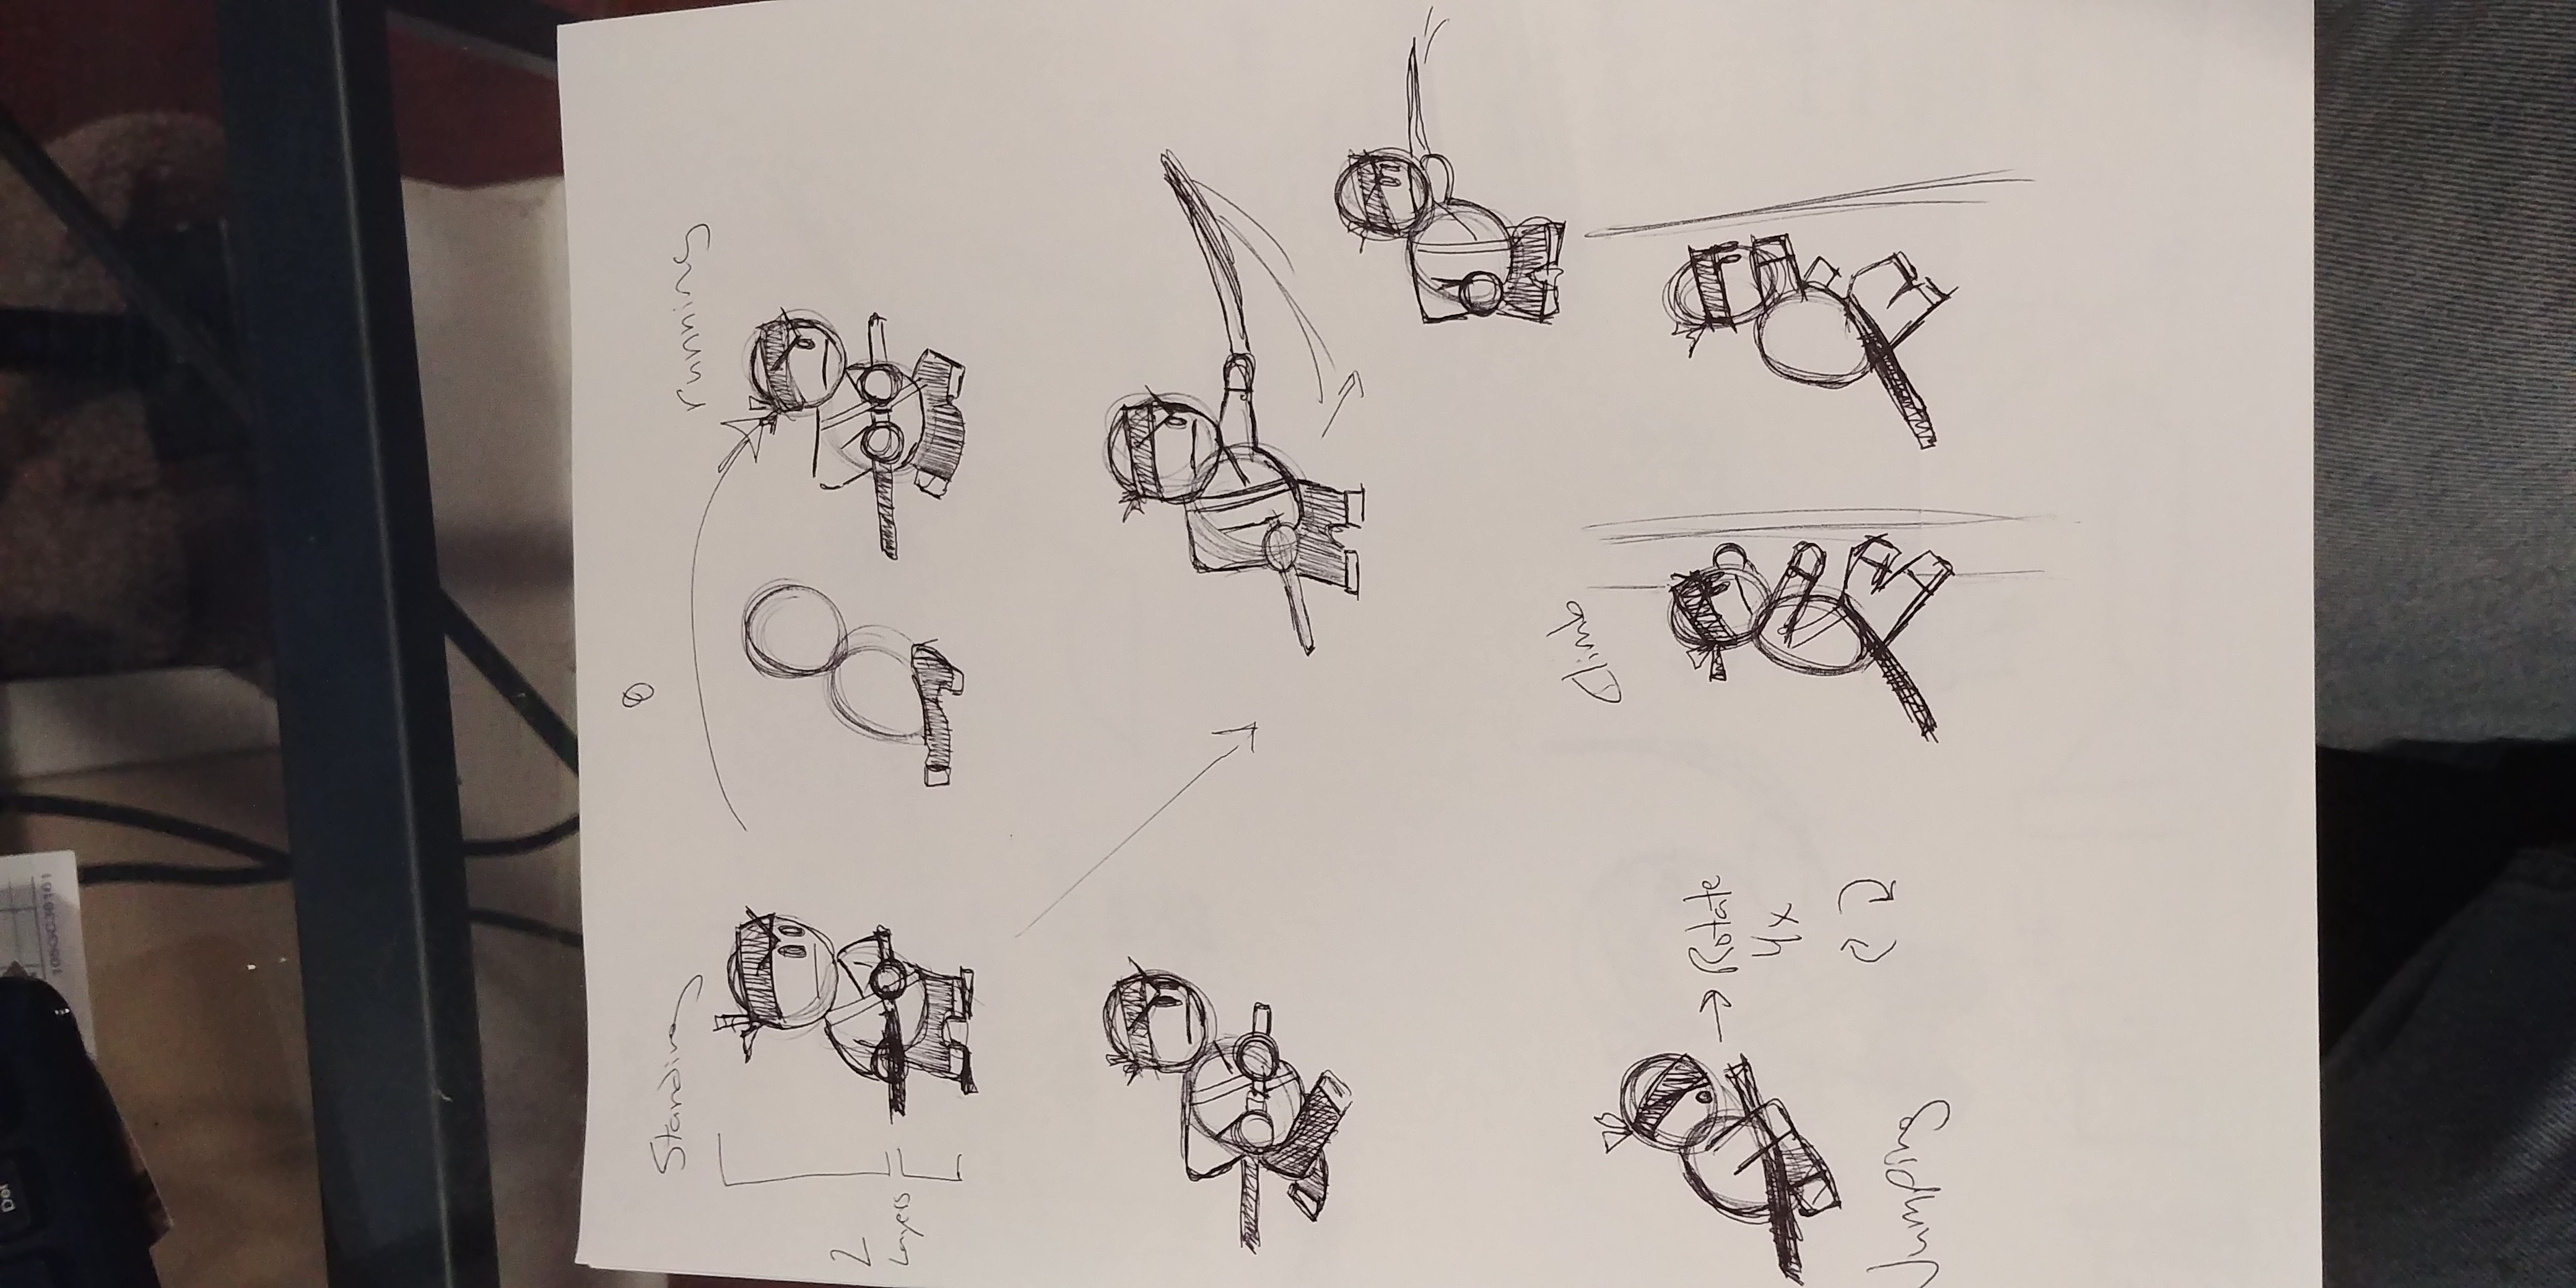 Del
105GC36161
Standing
running
2
Layers
Climb
Rotate
4x
Jumping